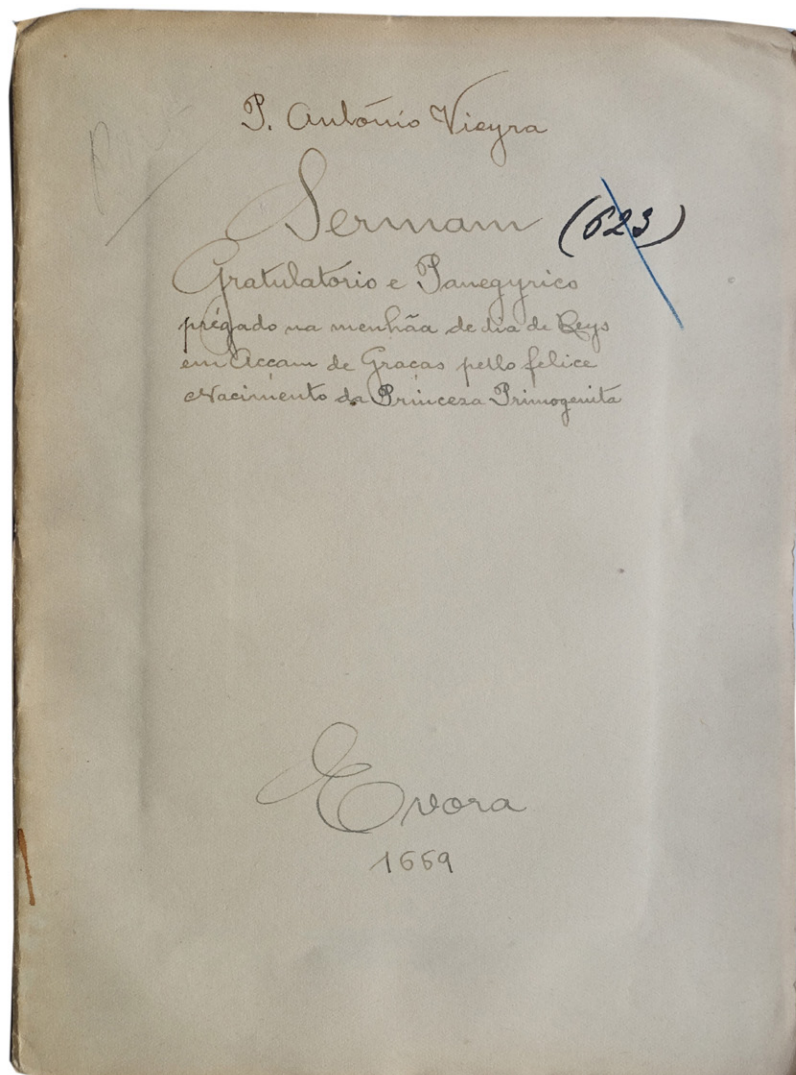 P. António Vieyra
Sermam (623)
Gratulatorio e Panegyrico
prégado na menhãa de dia de Reys
em Accam de Graças pello felice
Nacimento da Princeza Primogenita
Evora
1669